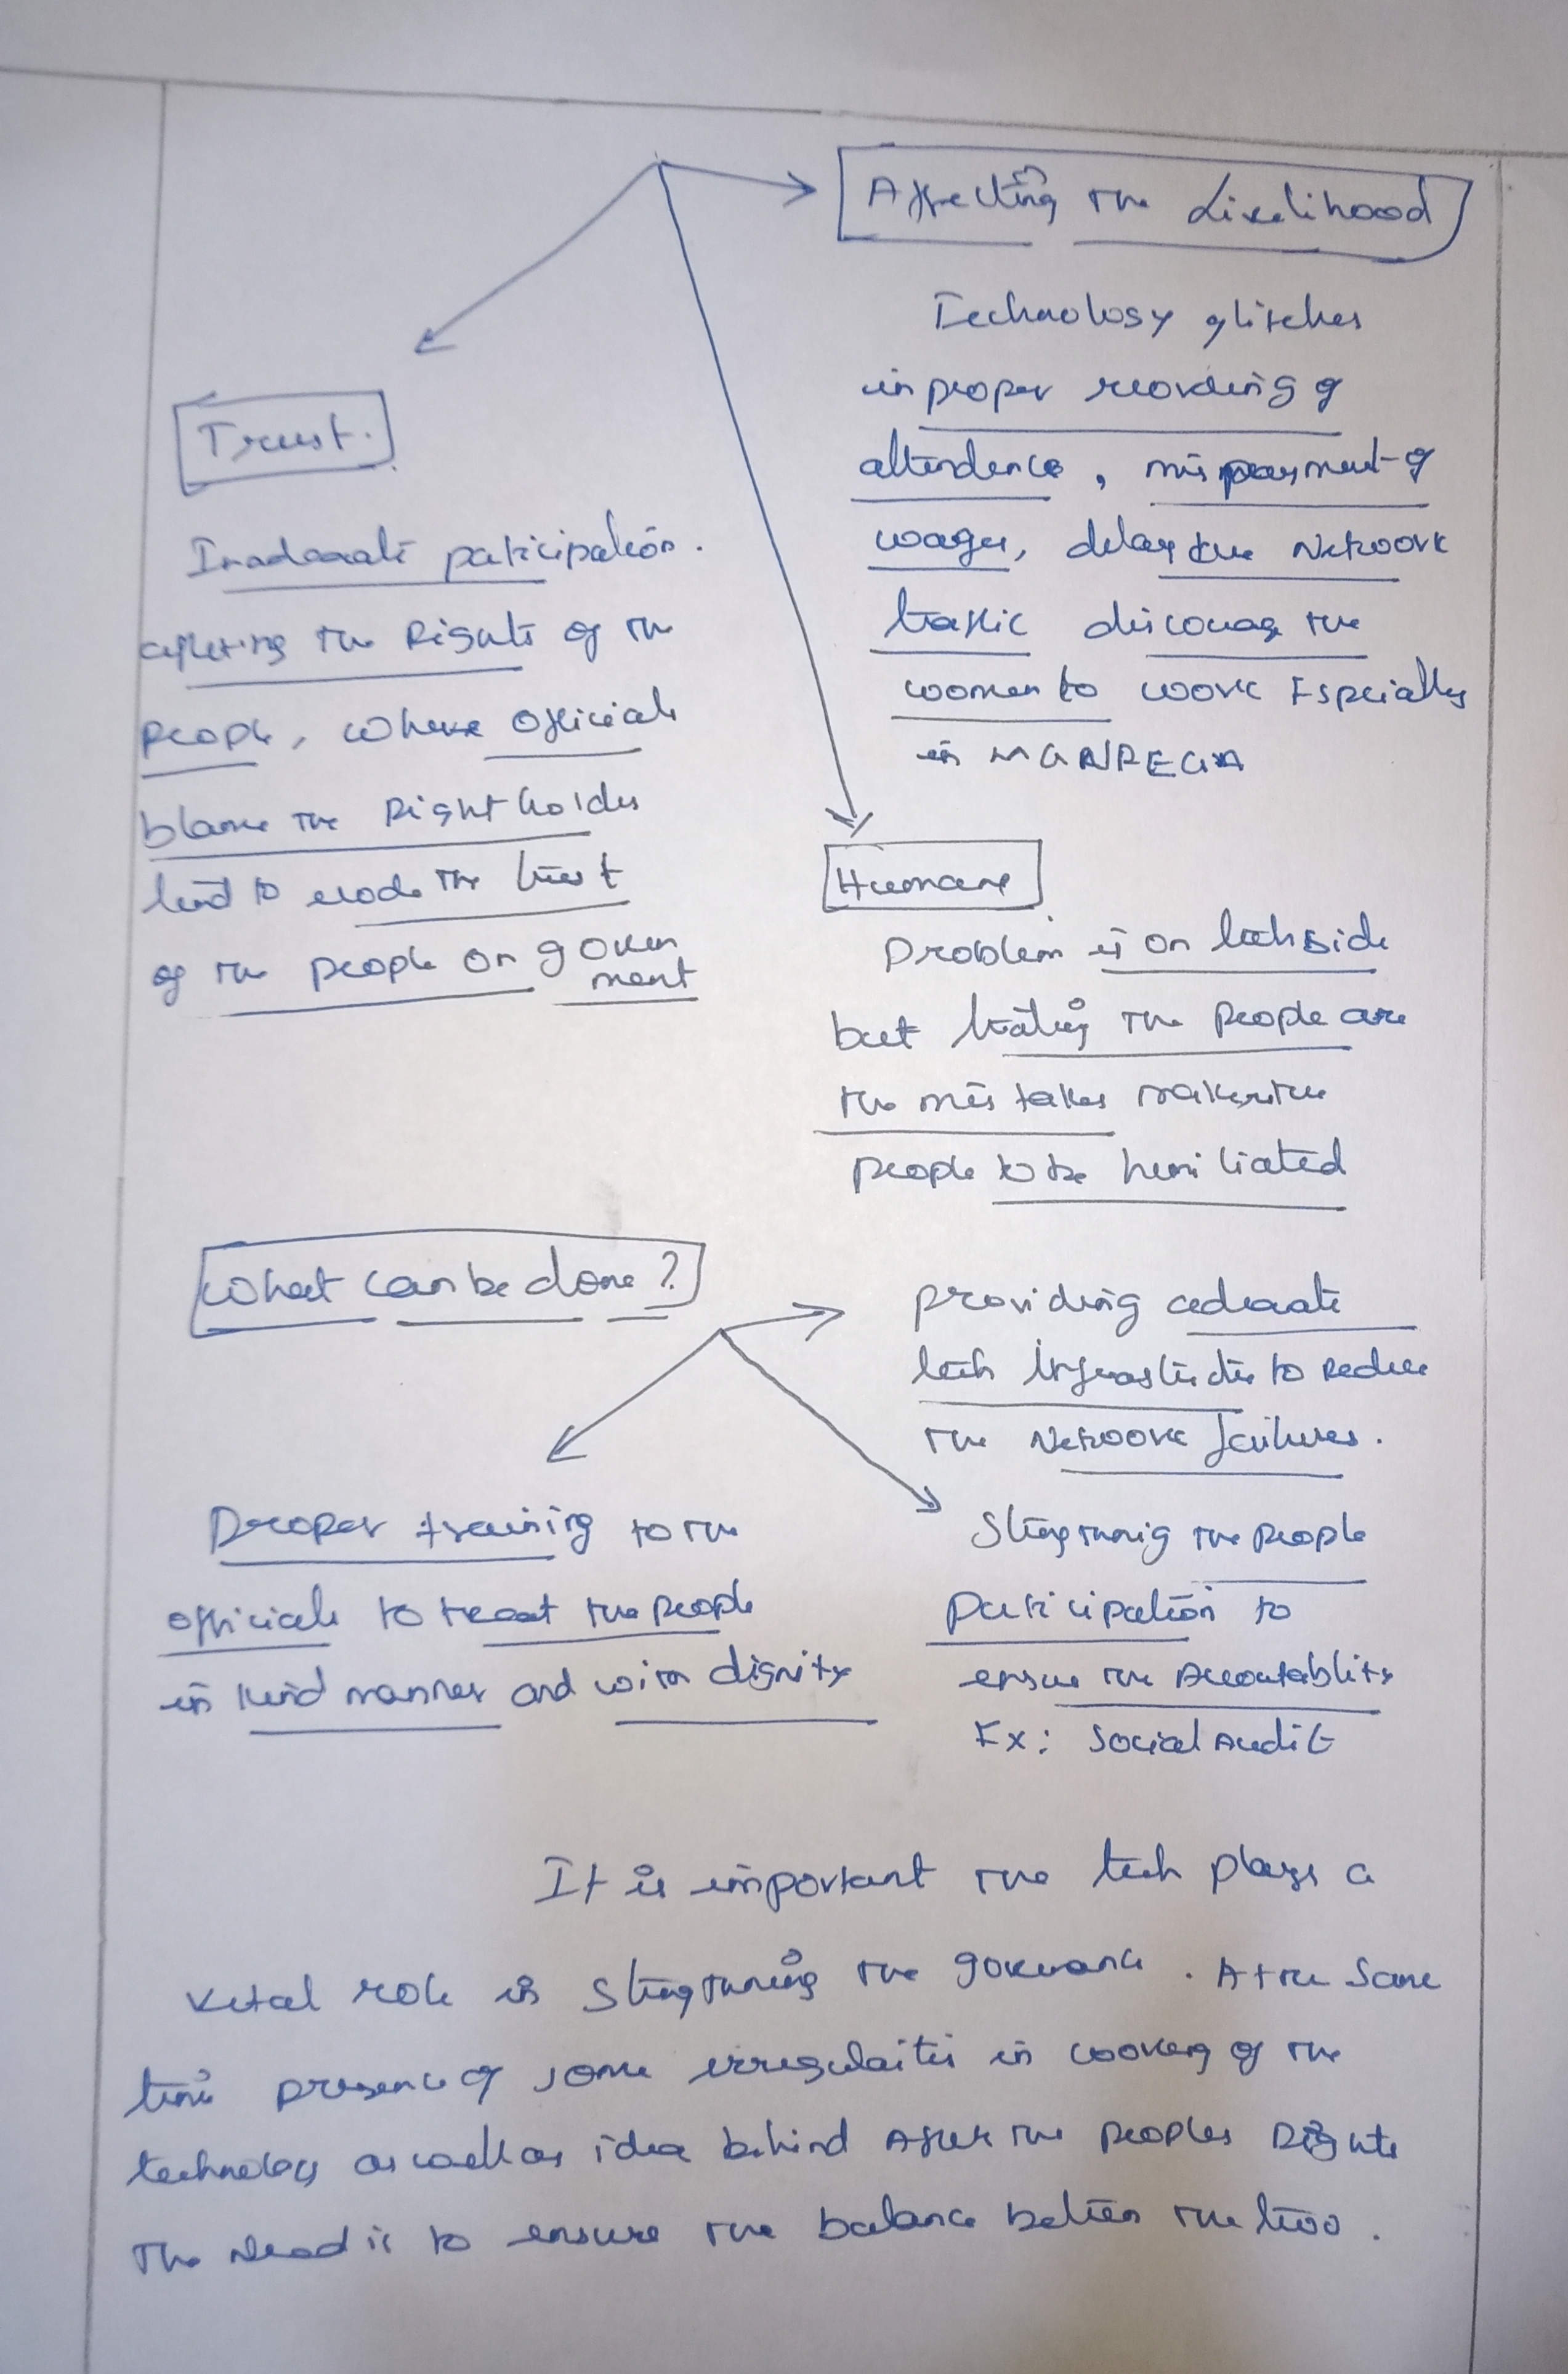 Affecting the Livelihood
Technology glitches
improper recording of
attendence, mispayment of
wages, delay due Network
traffic discourage the
women to work Especially
in MGNREGA
Trust.
Inadequate participation.
affecting the Rights of the
people, where officials
blame the Right holders
lead to erode the trust
of the people on govern
ment
Humane
Problem is on tech side
but treating the people are
the mistakes makes the
people to be humiliated
What can be done?
providing adequate
tech infrastructure to Reduce
the Network failures.
Proper training to the
officials to treat the people
in kind manner and with dignity
Strengthening the people
participation to
ensure the Accountablity
Ex: Social Audit
It is important the tech plays a
vital role in strengthening the governance. At the same
time presence of some irregulaities in working of the
technology as well as idea behind affect the peoples Rights
The Need is to ensure the balance between the two.